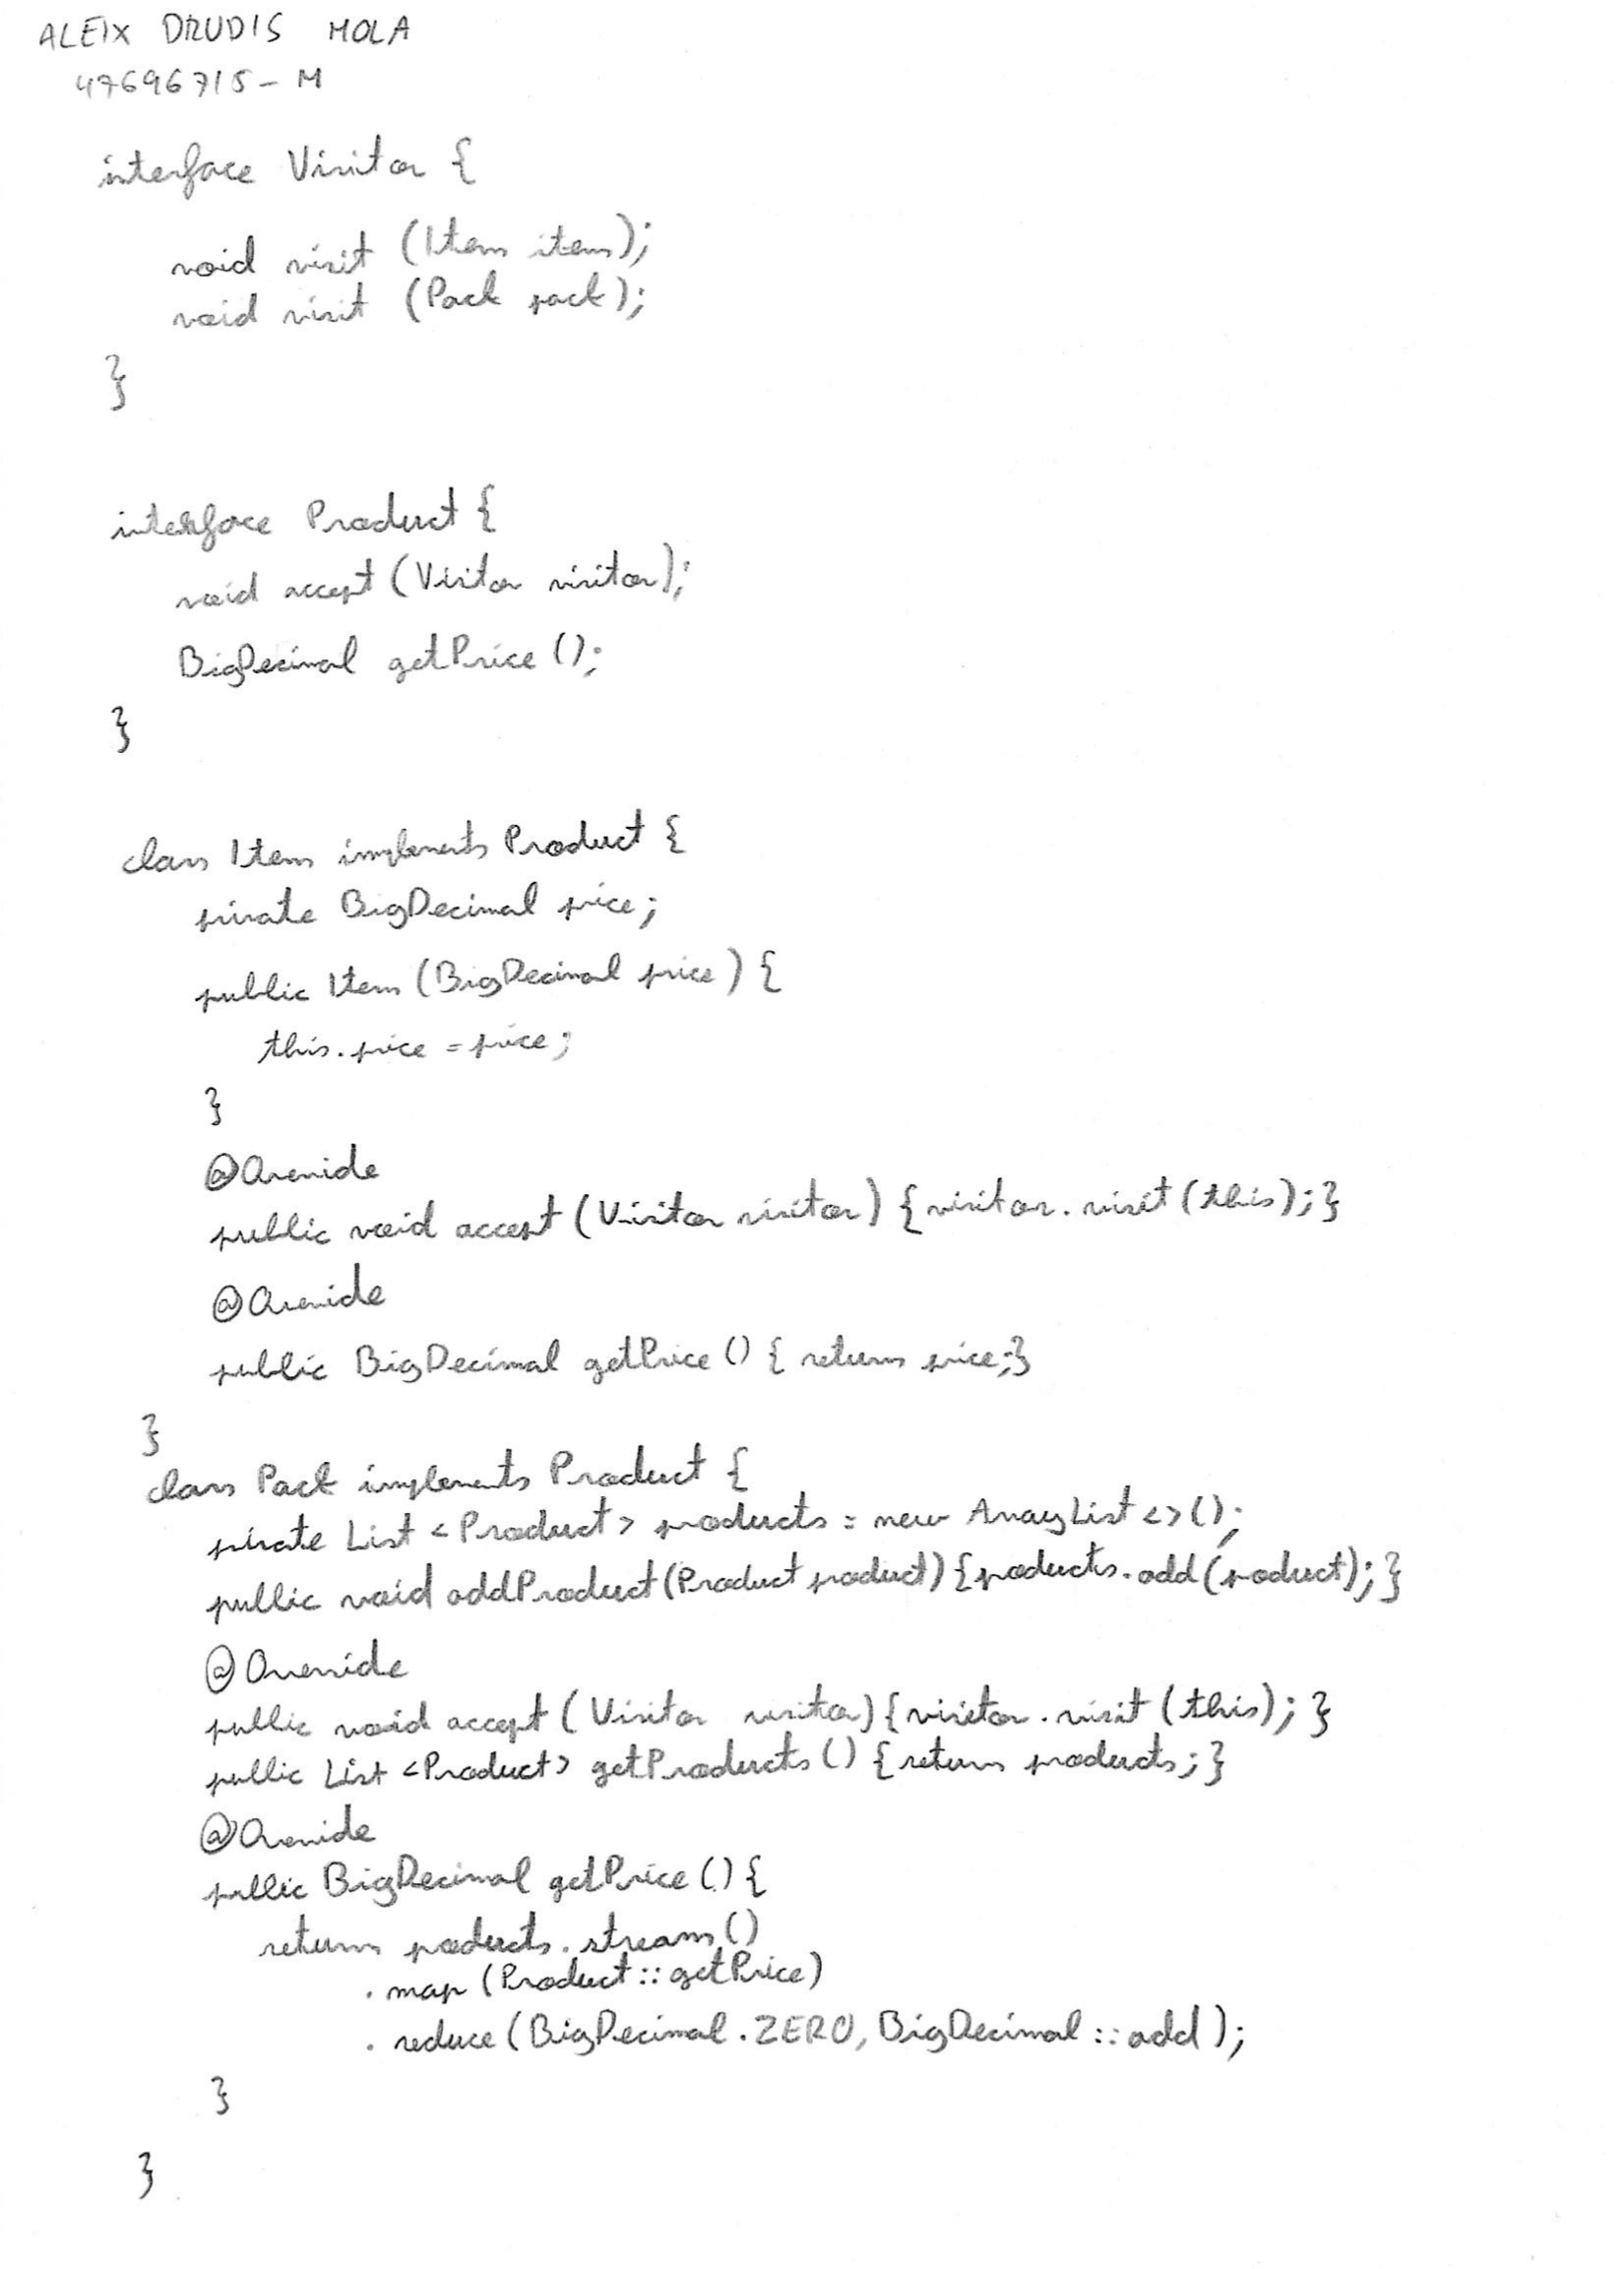 ALEIX DRUDIS MOLA
47696715-M
interface Visitor {
void visit (Item item);
void visit (Pack pack);
}
interface Product {
void accept (Visitor visitor);
BigDecimal getPrice ();
}
class Item implements Product {
private BigDecimal price;
public Item (BigDecimal price) {
this.price = price;
}
@Override
public void accept (Visitor visitor) {visitor.visit (this);}
@Override
public BigDecimal getPrice () { return price;}
}
class Pack implements Product {
private List <Product> products = new ArrayList <> ();
public void addProduct (Product product) {products.add (product);}
@Override
public void accept (Visitor visitor) {visitor.visit (this);}
public List <Product> getProducts () {return products;}
@Override
public BigDecimal getPrice () {
return products.stream ()
.map (Product::getPrice)
.reduce (BigDecimal.ZERO, BigDecimal::add);
}
}